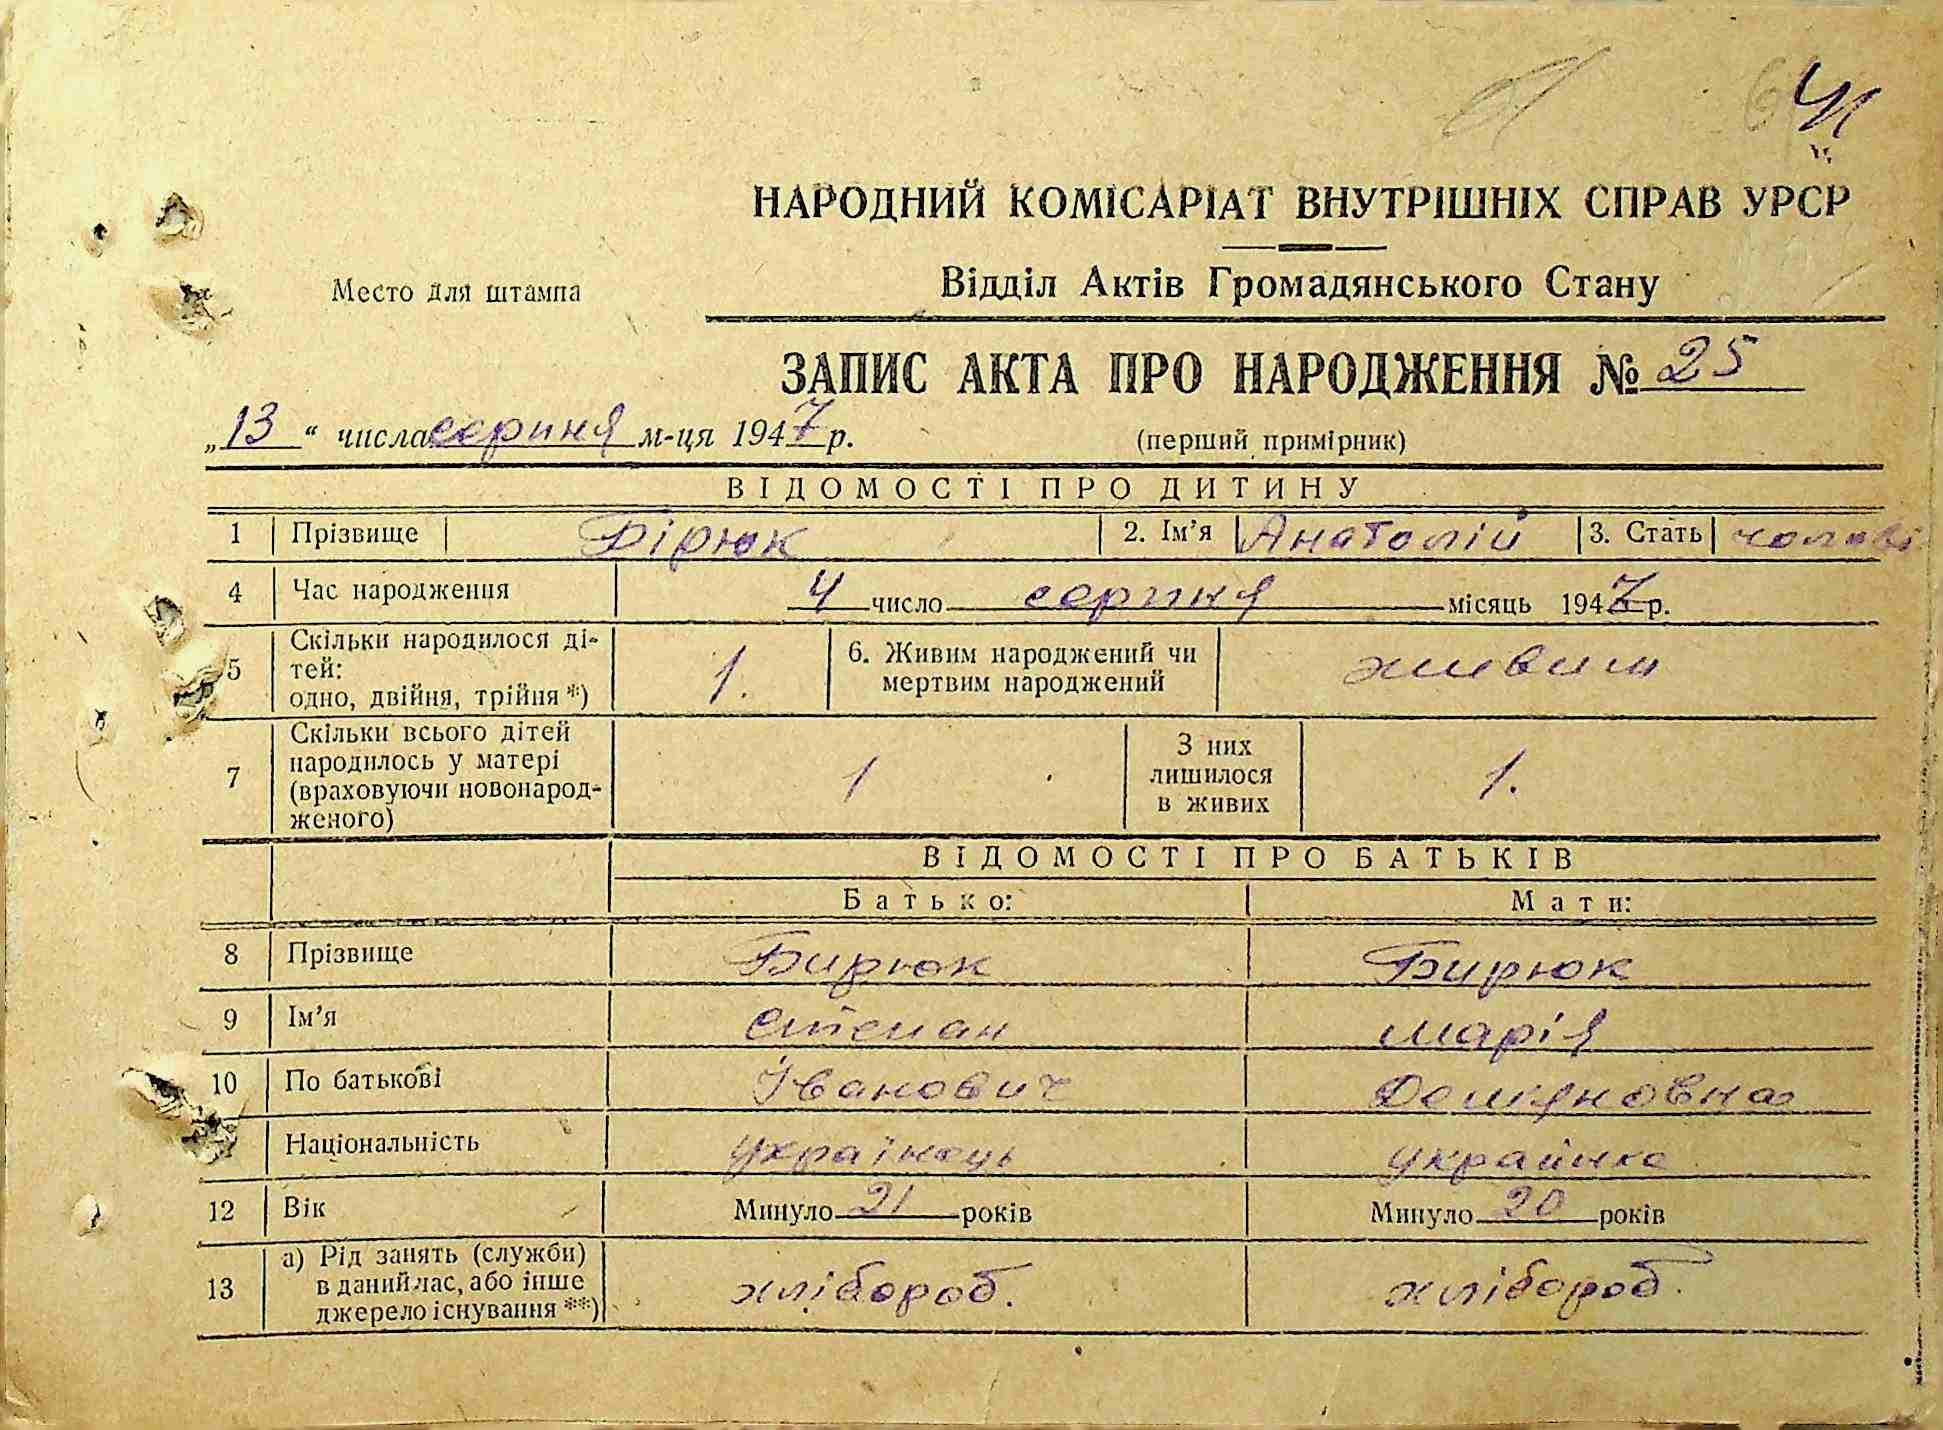 НАРОДНИЙ КОМІСАРІАТ ВНУТРІШНІХ СПРАВ УРСР
Место для штампа
Відділ Актів Громадянського Стану
ЗАПИС АКТА ПРО НАРОДЖЕННЯ № 25
„13“ числа серпня м-ця 1947 р.
(перший примірник)
ВІДОМОСТІ ПРО ДИТИНУ
1 Прізвище Бірюк 2. Ім’я Анатолій 3. Стать чолові
4 Час народження 4 число серпня місяць 1947 р.
5 Скільки народилося ді-
тей:
одно, двійня, трійня *) 1.
6. Живим народжений чи
мертвим народжений живим
7 Скільки всього дітей
народилось у матері
(враховуючи новонарод-
женого) 1
З них
лишилося
в живих 1.
ВІДОМОСТІ ПРО БАТЬКІВ
Батько: Мати:
8 Прізвище Бирюк Бирюк
9 Ім’я Степан Марія
10 По батькові Іванович Домяновна
Національність українець украинка
12 Вік Минуло 21 років Минуло 20 років
13 а) Рід занять (служби)
в даний час, або інше
джерело існування **) хлібороб. хлібороб.